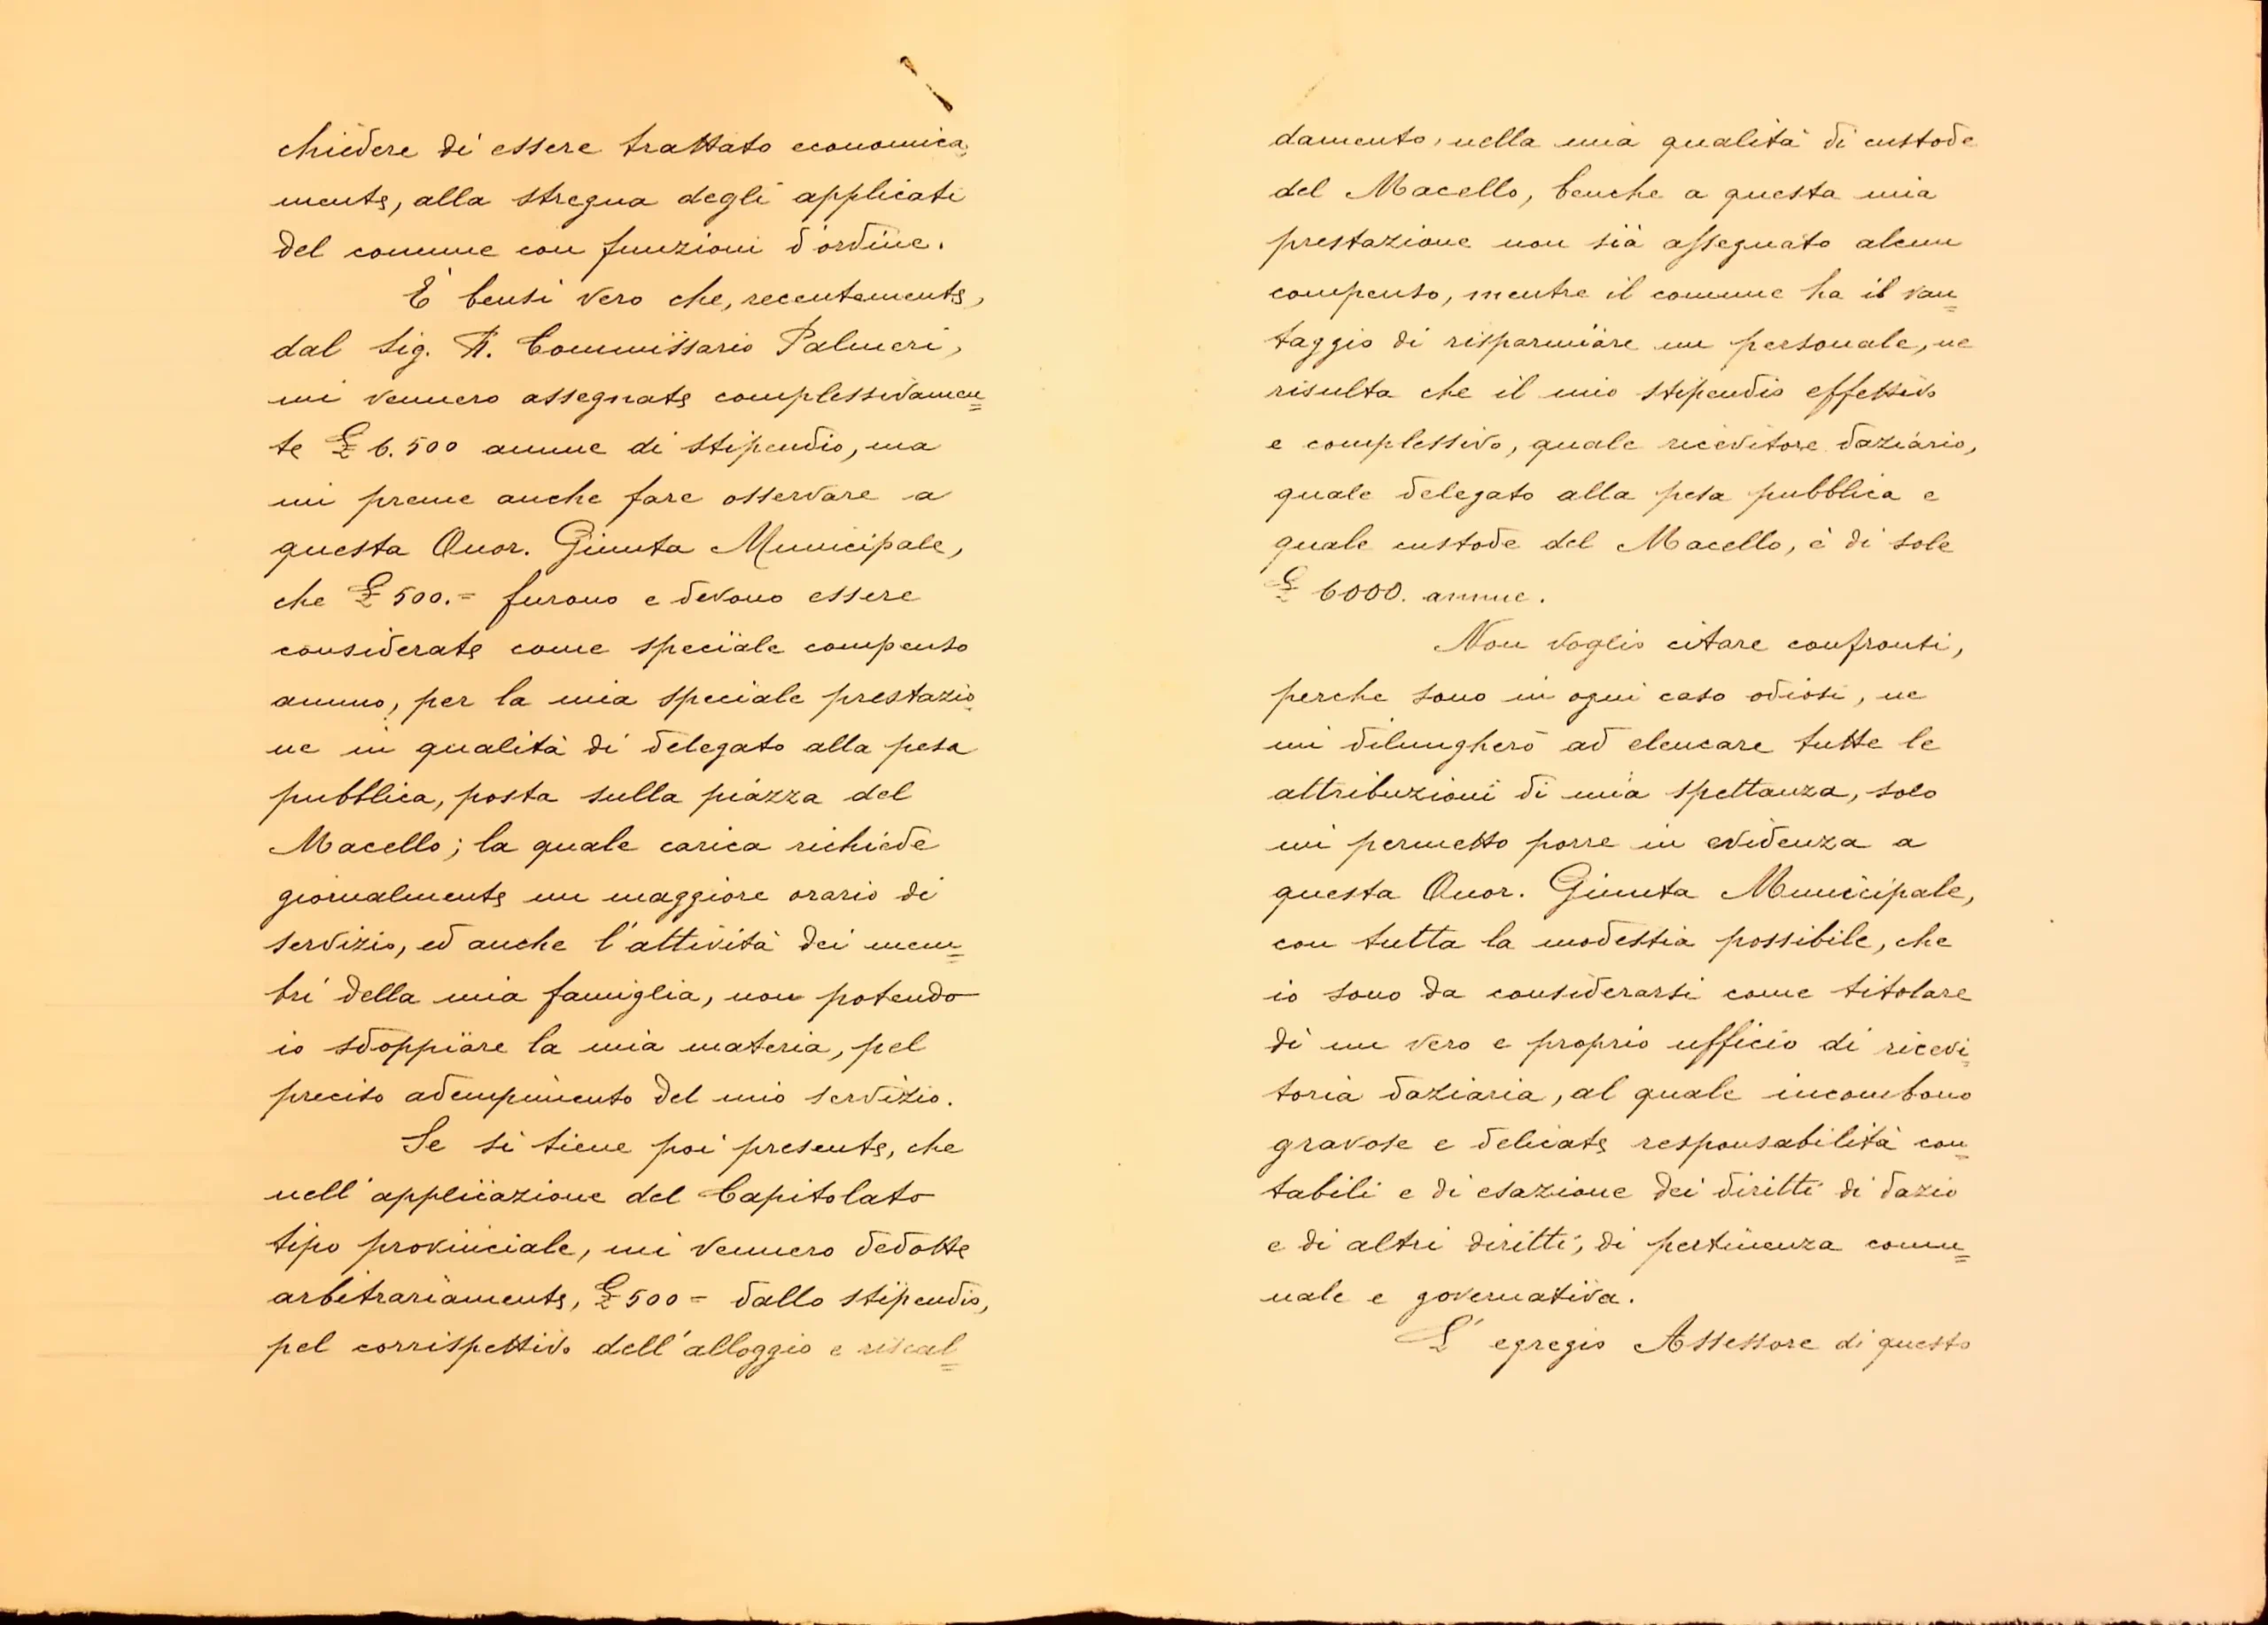 chiedere di essere trattato economica-
mente, alla stregua degli applicati
del comune con funzioni d'ordine.
È bensi vero che, recentemente,
dal Sig. R. Commissario Palmeri,
mi vennero assegnate complessivamen=
te £ 6.500 annue di stipendio, ma
mi preme anche fare osservare a
questa Onor. Giunta Municipale,
che £ 500.= furono e devono essere
considerate come speciale compenso
annuo, per la mia speciale prestazio-
ne in qualità di delegato alla pesa
pubblica, posta sulla piazza del
Macello; la quale carica richiede
giornalmente un maggiore orario di
servizio, ed anche l'attività dei mem=
bri della mia famiglia, non potendo
io sdoppiare la mia materia, pel
preciso adempimento del mio servizio.
Se si tiene poi presente, che
nell'applicazione del Capitolato
tipo provinciale, mi vennero dedotte
arbitrariamente, £ 500= dallo stipendio,
pel corrispettivo dell'alloggio e riscal=
damento, nella mia qualità di custode
del Macello, benche a questa mia
prestazione non sia assegnato alcun
compenso, mentre il comune ha il van=
taggio di risparmiare un personale, ne
risulta che il mio stipendio effettivo
e complessivo, quale ricevitore daziario,
quale delegato alla pesa pubblica e
quale custode del Macello, è di sole
£ 6000. annue.
Non voglio citare confronti,
perche sono in ogni caso odiosi, ne
mi dilungherò ad elencare tutte le
attribuzioni di mia spettanza, solo
mi permetto porre in evidenza a
questa Onor. Giunta Municipale,
con tutta la modestia possibile, che
io sono da considerarsi come titolare
di un vero e proprio ufficio di ricevi-
toria daziaria, al quale incombono
gravose e delicate responsabilità con=
tabili e di esazione dei diritti di dazio
e di altri diritti, di pertinenza comu=
nale e governativa.
L' egregio Assessore di questo